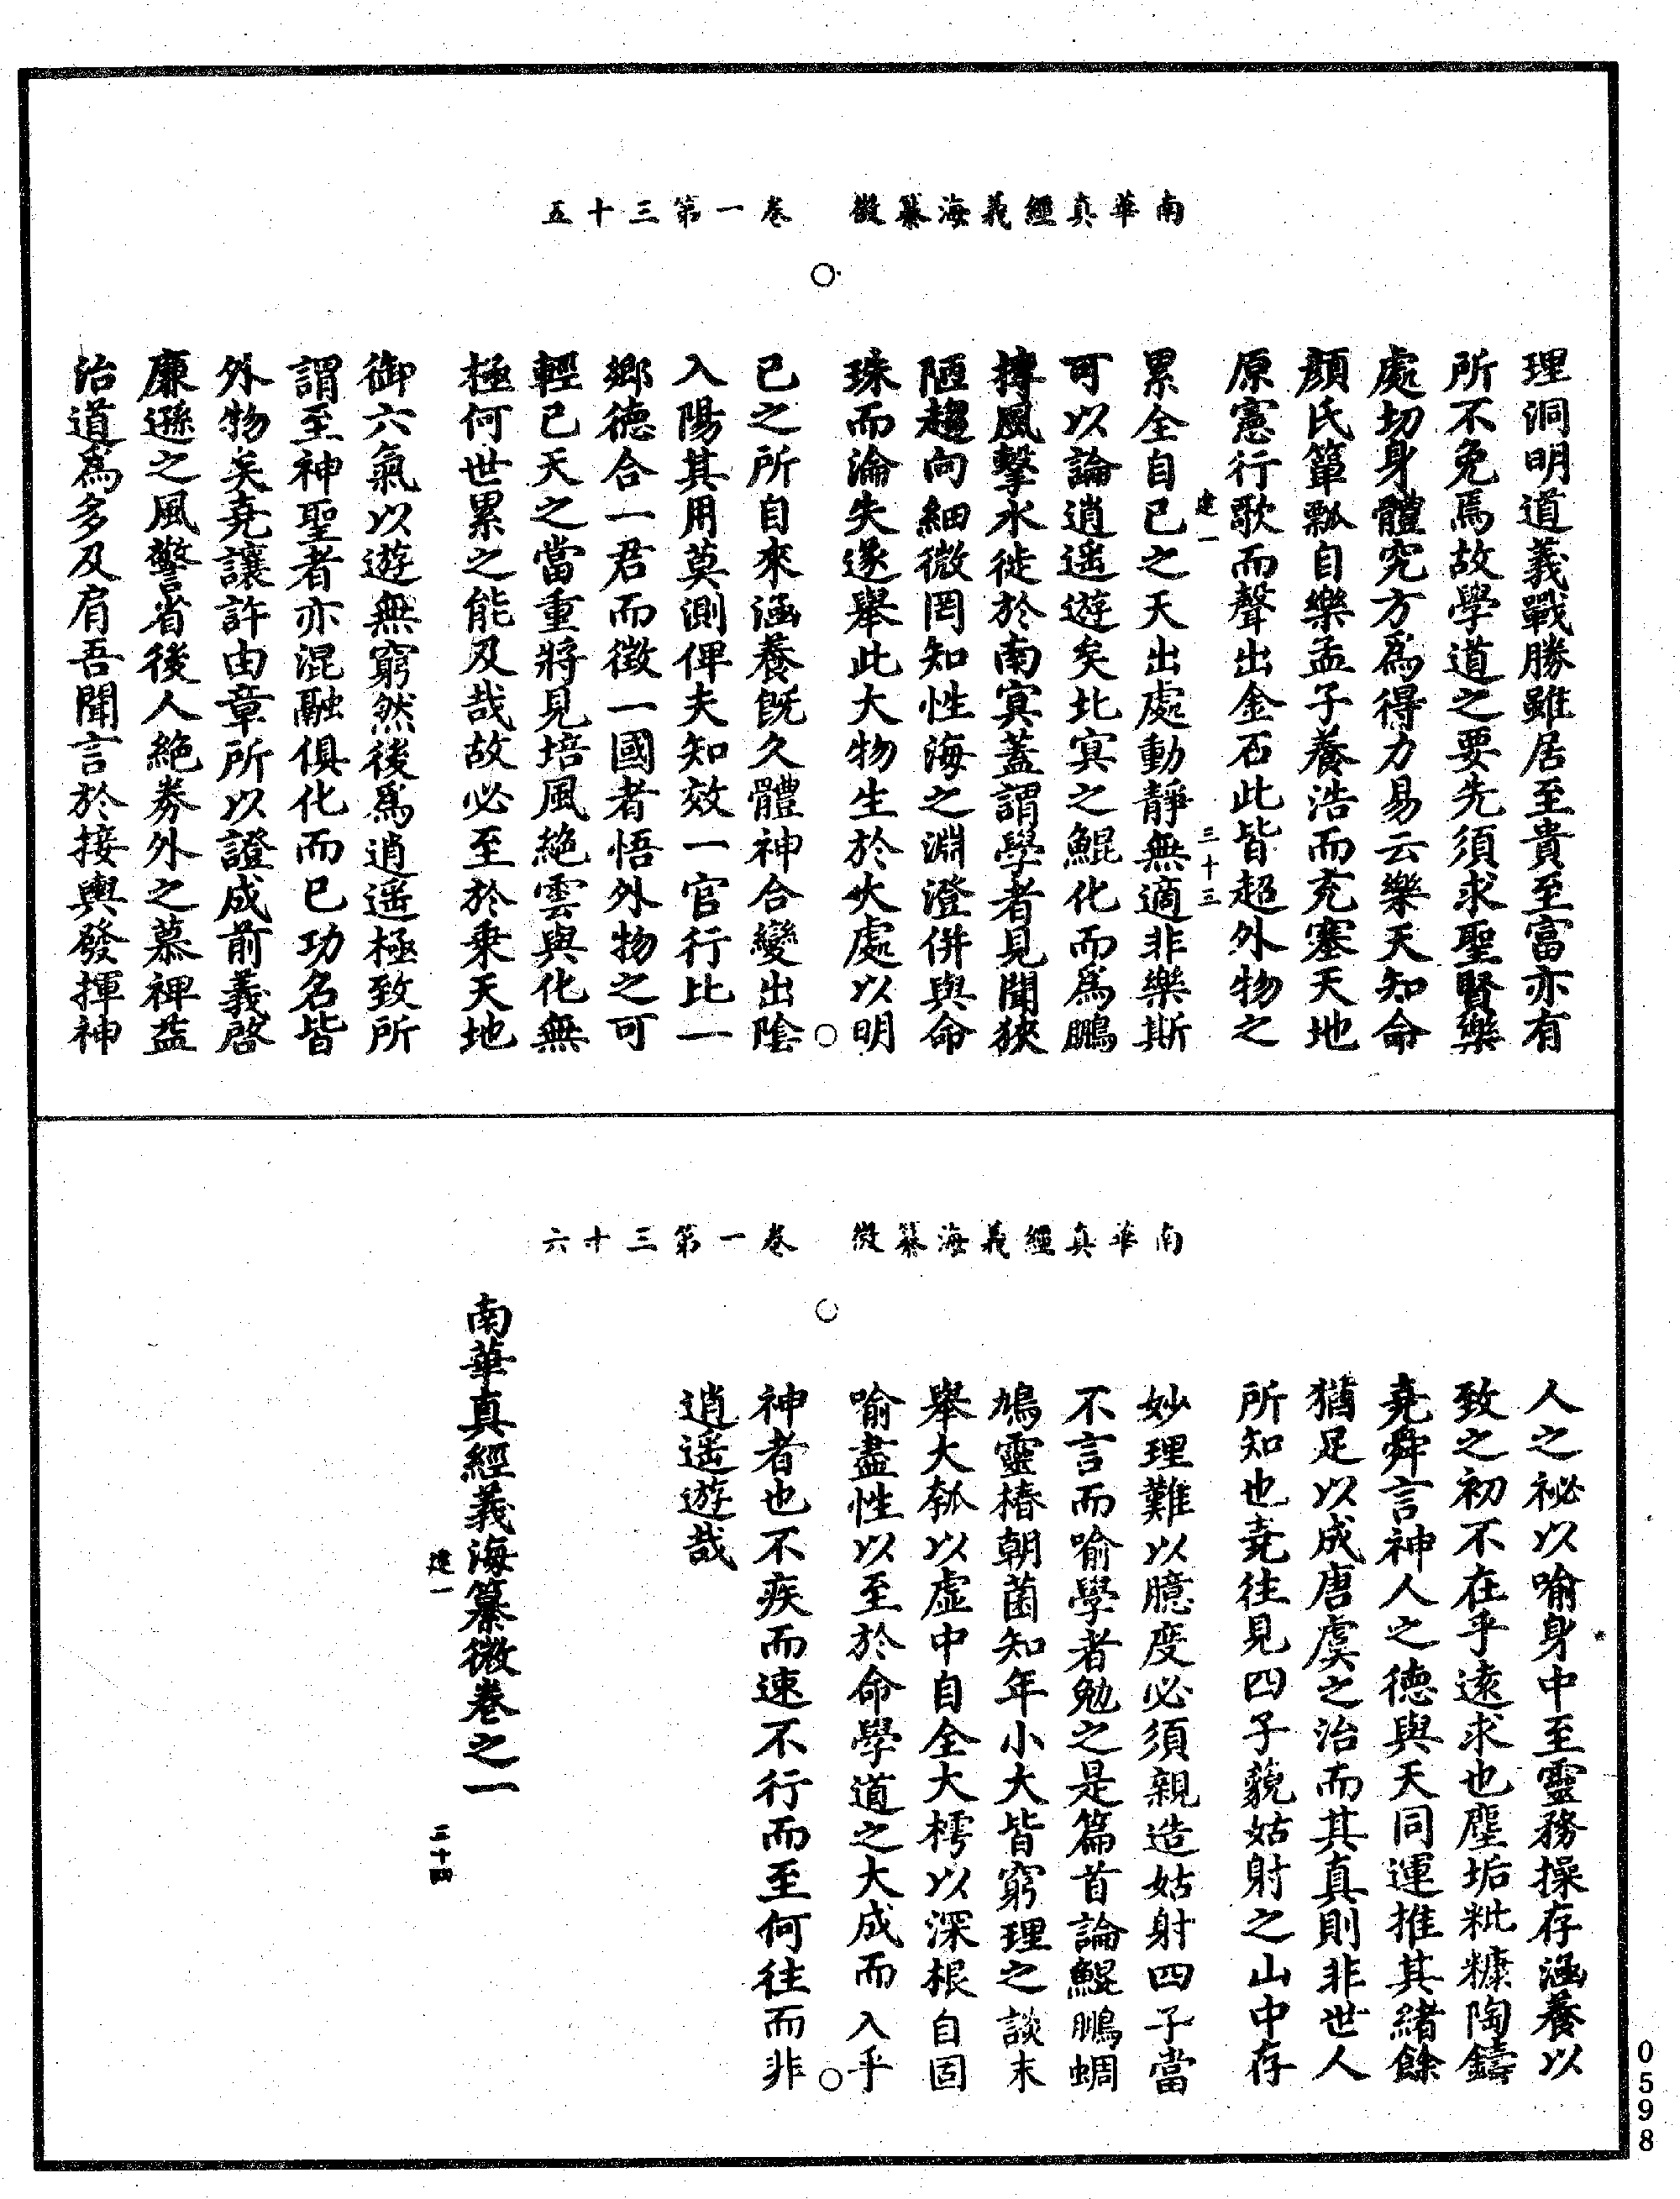 南華真經義海纂微　卷一第三十五
理洞明道義戰勝雖居至貴至富亦有
所不免焉故學道之要先須求聖賢樂
處切身體究方爲得力易云樂天知命
顏氏簞瓢自樂孟子養浩而充塞天地
原憲行歌而聲出金石此皆超外物之
建一　三十三
累全自己之天出處動靜無適非樂斯
可以論逍遙遊矣北冥之鯤化而爲鵬
摶風擊水徙於南冥蓋謂學者見聞狹
陋趨向細微罔知性海之淵澄併與命
珠而淪失遂舉此大物生於大處以明
已之所自來涵養既久體神合變出陰
入陽其用莫測俾夫知效一官行比一
鄉德合一君而徵一國者悟外物之可
輕已天之當重將見培風絕雲與化無
極何世累之能及哉故必至於乘天地
御六氣以遊無窮然後爲逍遙極致所
謂至神聖者亦混融俱化而已功名皆
外物矣堯讓許由章所以證成前義啓
廉遜之風警省後人絕券外之慕裨益
治道爲多及肩吾聞言於接輿發揮神
南華真經義海纂微　卷一第三十六
人之祕以喻身中至靈務操存涵養以
致之初不在乎遠求也塵垢粃糠陶鑄
堯舜言神人之德與天同運推其緒餘
猶足以成唐虞之治而其真則非世人
所知也堯往見四子藐姑射之山中存
妙理難以臆度必須親造姑射四子當
不言而喻學者勉之是篇首論鯤鵬蜩
鳩靈椿朝菌知年小大皆窮理之談末
舉大瓠以虛中自全大樗以深根自固
喻盡性以至於命學道之大成而入乎
神者也不疾而速不行而至何往而非
逍遙遊哉
南華真經義海纂微卷之一
建一　三十四
0598